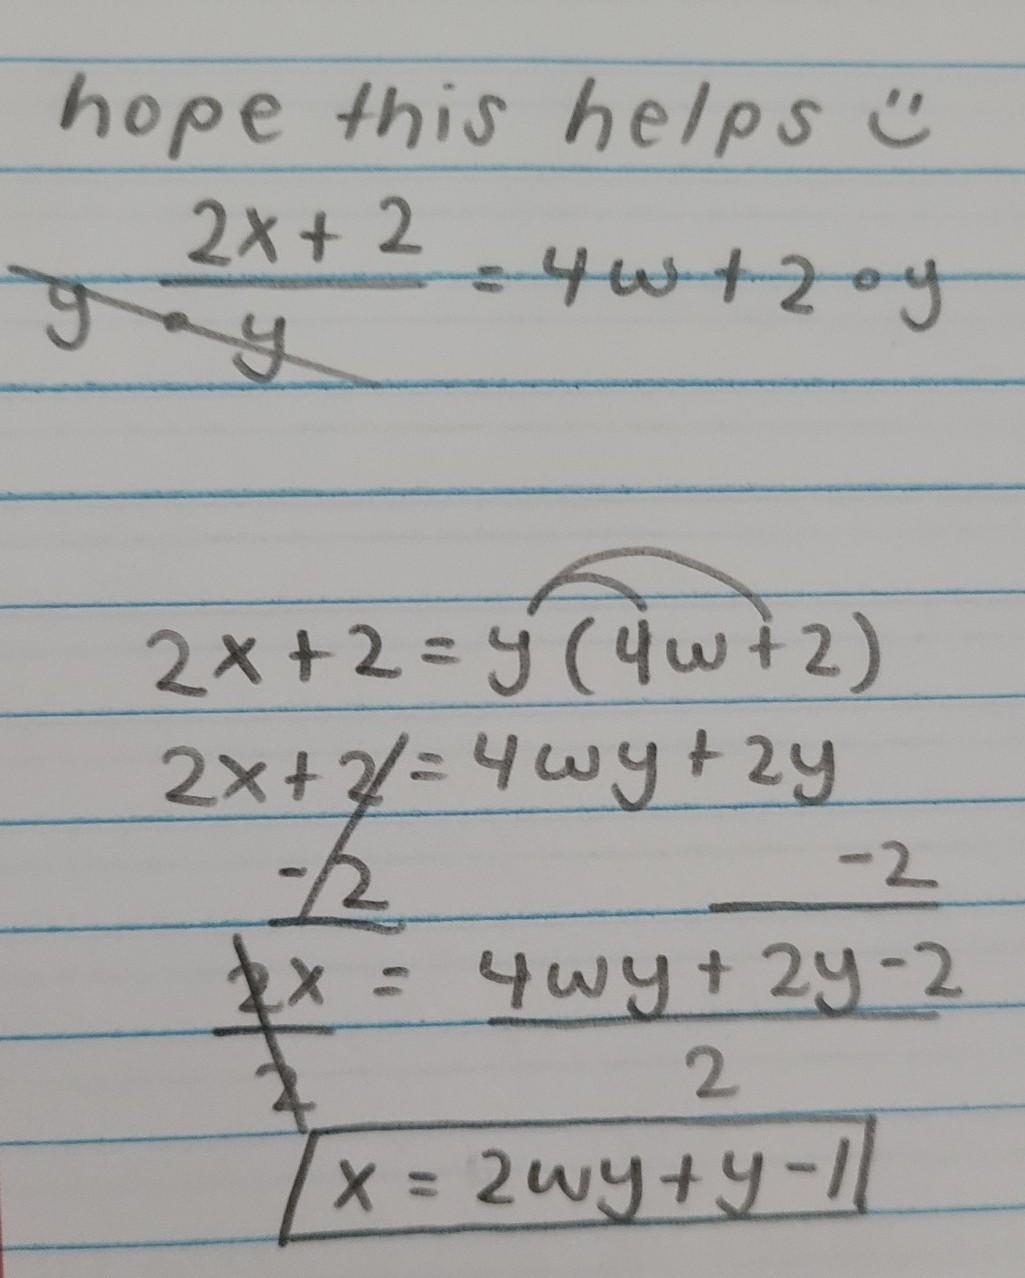 hope this helps :)
y • (2x + 2)/y = 4w + 2 • y
2x + 2 = y (4w + 2)
2x + 2 = 4wy + 2y
-2 -2
2x = 4wy + 2y - 2
2 2
x = 2wy + y - 1